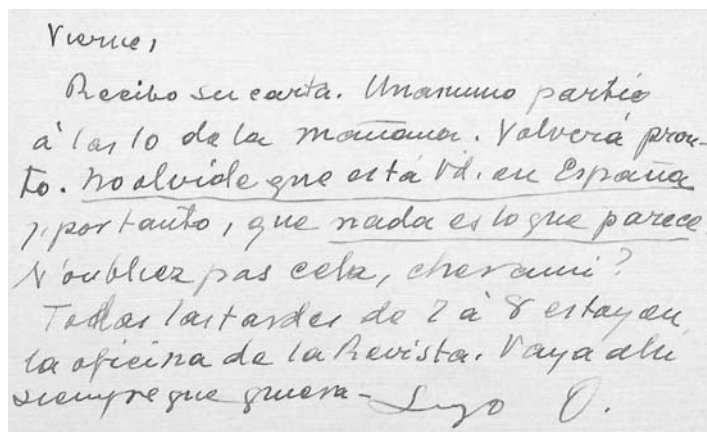 Viernes
Recibo su carta. Unamuno partió
á las 10 de la mañana. Volverá pron-
to. No olvide que está Vd. en España
y, por tanto, que nada es lo que parece.
N'oubliez pas cela, cher ami?
Todas las tardes de 7 á 8 estoy en
la oficina de la Revista. Vaya allí
siempre que quiera — Suyo O.